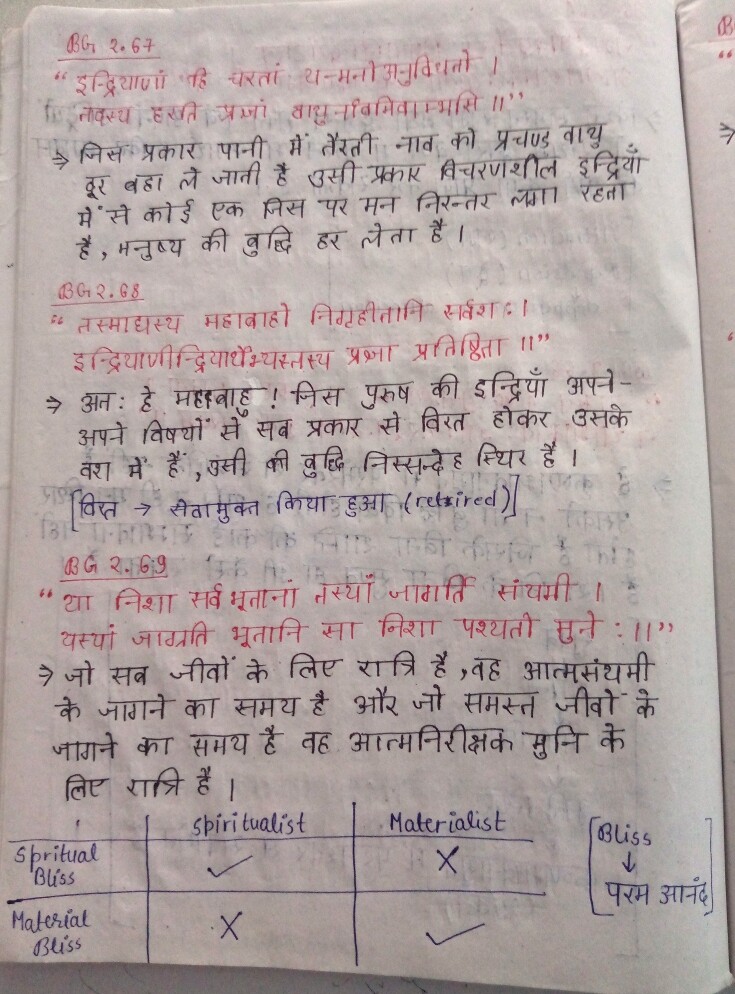 BG 2.67
“ इन्द्रियाणां हि चरतां यन्मनोऽनुविधीयते ।
तदस्य हरति प्रज्ञां वायुर्नावमिवाम्भसि ॥”
⇒ जिस प्रकार पानी में तैरती नाव को प्रचण्ड वायु
दूर बहा ले जाती है उसी प्रकार विचरणशील इन्द्रियाँ
में से कोई एक जिस पर मन निरन्तर लगा रहता
है, मनुष्य की बुद्धि हर लेता है ।
BG 2.68
“ तस्माद्यस्य महाबाहो निगृहीतानि सर्वशः ।
इन्द्रियाणीन्द्रियार्थेभ्यस्तस्य प्रज्ञा प्रतिष्ठिता ॥”
⇒ अतः हे महाबाहु ! जिस पुरुष की इन्द्रियाँ अपने-
अपने विषयों से सब प्रकार से विरत होकर उसके
वश में हैं, उसी की बुद्धि निस्सन्देह स्थिर है ।
[विरत → सेवामुक्त किया हुआ (retired)]
BG 2.69
“ या निशा सर्वभूतानां तस्यां जागर्ति संयमी ।
यस्यां जाग्रति भूतानि सा निशा पश्यतो मुनेः ॥”
⇒ जो सब जीवों के लिए रात्रि है, वह आत्मसंयमी
के जागने का समय है और जो समस्त जीवों के
जागने का समय है वह आत्मनिरीक्षक मुनि के
लिए रात्रि है ।
Spiritualist Materialist
Spritual Bliss ✓ X
Material Bliss X ✓
[Bliss
↓
परम आनंद]